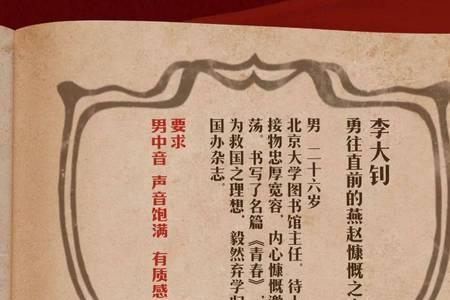 李大钊
勇往直前的燕赵慷慨之
男 二十六岁
北京大学图书馆主任。待
接物忠厚宽容，内心慷慨激
荡。书写了名篇《青春》，
为救国之理想，毅然弃学归
国办杂志。
要求
男中音 声音饱满 有质感